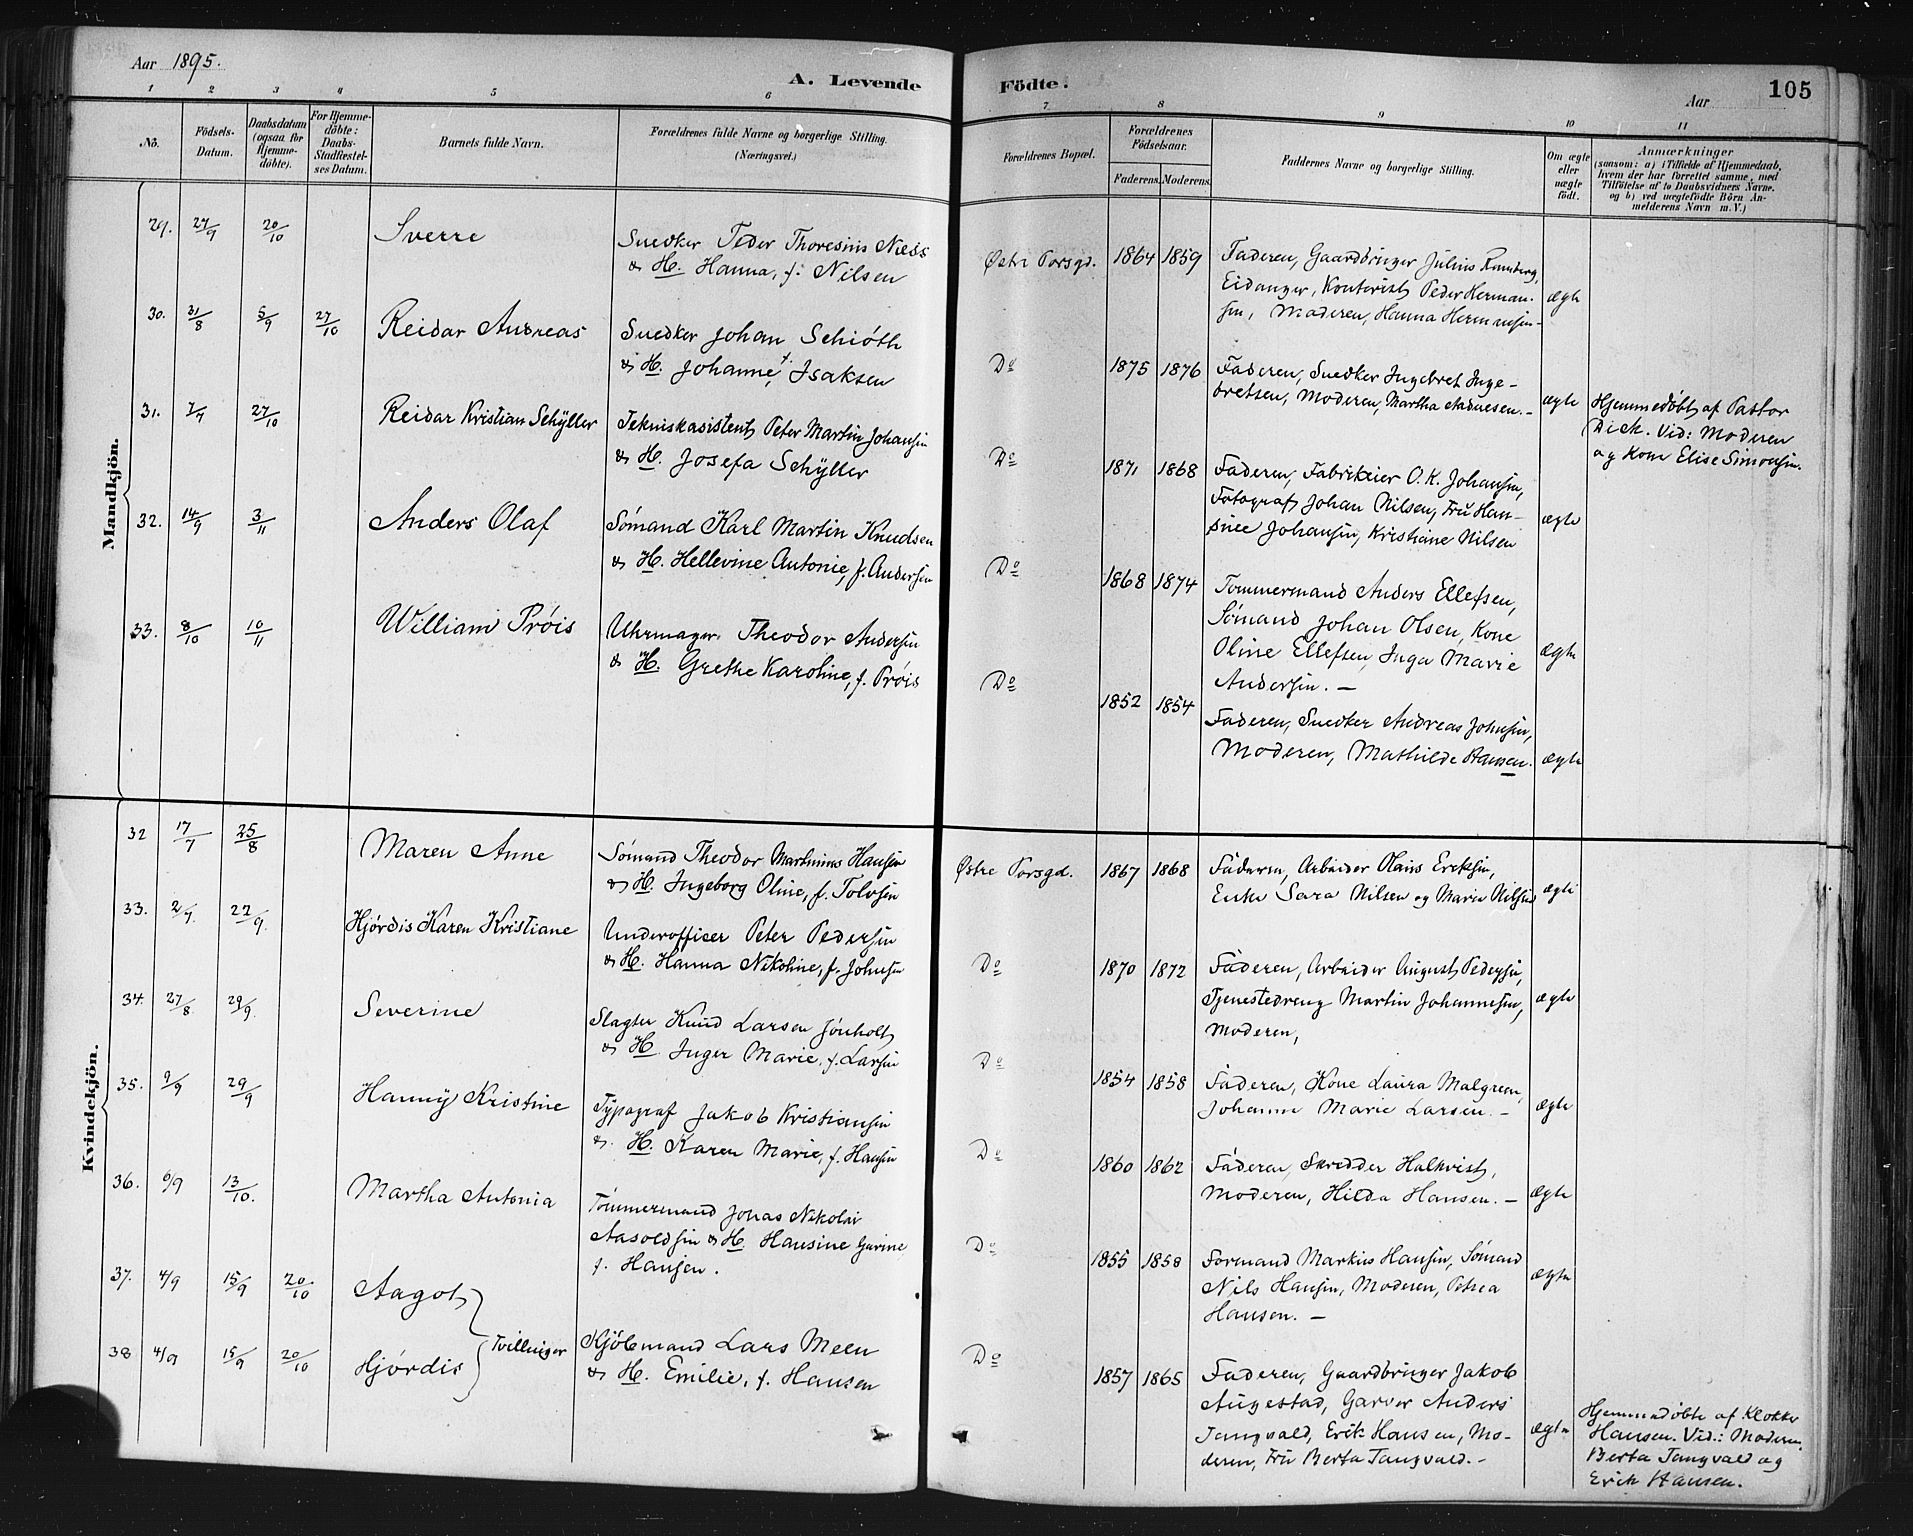 Aar 1895.
A. Levende
1 2 3 4 5 6
No.
Födsels-
Datum.
Daabsdatum
(ogsaa for
Hjemme-
döbte).
For Hjemme-
döbte:
Daabs-
Stadfæstel-
ses Datum.
Barnets fulde Navn.
Forældrenes fulde Navne og borgerlige Stilling.
(Næringsvei.)
Mandkjön.
29. 27/9 20/10 Sverre
Snedker Peder Thoresius Næss
& H. Hanna, f. Nilsen
30. 31/8 5/9 27/10 Reidar Andreas
Snedker Johan Schiøth
& H. Johanne, f. Isaksen
31. 7/9 27/10 Reidar Kristian Schÿller
Tekniskasistent Peter Martin Johansen
& H. Josefa Schÿller
32. 14/9 3/11 Anders Olaf
Sömand Karl Martin Knudsen
& H. Hellevine Antonie, f. Andersen
33. 8/10 10/11 William Prøis
Uhrmager Theodor Andersen
& H. Grethe Karoline, f. Prøis
Kvindekjön.
32 17/7 25/8 Maren Anne
Sömand Theodor Martinius Hansen
& H. Ingeborg Oline, f. Tolvsen
33. 2/7 22/9. Hjørdis Karen Kristiane
Underofficer Peter Pedersen
& H. Hanna Nikoline, f. Johnsen
34. 27/8 29/9. Severine
Slagter Knud Larsen Jönholt
& H. Inger Marie, f. Larsen
35. 9/9 29/9 Hanny Kristine
Typograf Jakob Kristiansen
& H. Karen Marie, f. Hansen
36. 6/9 13/10. Martha Antonia
Tömmermand Jonas Nikolai
Aasoldsen & H. Hansine Gurine
f. Hansen.
37. 4/9 15/9 20/10 Aagot
38 4/9 15/9 20/10 Hjórdis
Tvillinger
Kjöbmand Lars Meen
& H. Emilie, f. Hansen
Födte.
Aar
105
7 8 9 10 11
Forældrenes Bopæl.
Forældrenes
Födselsaar.
Faderens. Moderens.
Faddernes Navne og borgerlige Stilling.
Om ægte
eller
uægte
födt.
Anmærkninger
(saasom: a) i Tilfælde af Hjemmedaab,
hvem der har forrettet samme, med
Tilföielse af to Daabsvidners Navne.
og b) ved uægtefödte Börn An-
melderens Navn m. V.)
Østre Porsgd. 1864 1859
Faderen, Gaardbruger Julius Ramberg,
Eidanger, Kontorist Peder Herman-
sen, Moderen, Hanna Hermansen-
ægte
Do 1875 1876
Faderen, Snedker Ingebret Inge-
bretsen, Moderen, Martha Andresen.-
ægte
Hjemmedøbt af Pastor
Dick. Vid: Moderen
og Kone Elise Simonsen.
Do 1871 1868
Faderen, Fabrikeier O. K. Johansen,
Fotograf Johan Nilsen, Fru Han-
sine Johansen, Kristiane Nilsen
ægte
Do 1868 1874
Tommermand Anders Ellefsen,
Sømand Johan Olsen, Kone
Oline Ellefsen, Inga Marie
Andersen. -
ægte
Do 1852 1854
Faderen, Snedker Andreas Johnsen,
Moderen, Mathilde Hansen.
ægte
Østre Porsgd. 1867 1868
Faderen, Arbeider Olaus Eriksen,
Enke Sara Nilsen og Marie Nilsen
ægte
Do 1870 1872
Faderen, Arbeider August Pedersen,
Tjenestedreng Martin Johannesen,
Moderen,
ægte
Do 1854 1858
Faderen, Kone Laura Malgreen,
Johanne Marie Larsen. -
ægte
Do 1860 1862
Faderen, Skredder Halkvist,
Moderen, Hilda Hansen. -
ægte
Do 1855 1858
Formand Markus Hansen, Sömand
Nils Hansen, Moderen, Petrea
Hansen. -
ægte
Do 1857 1865
Faderen, Gaardbruger Jakob
Augestad, Garver Anders
Tangvald, Erik Hansen, Mo-
deren, Fru Berta Tangvald. -
ægte
Hjemmedøbte af Klokker
Hansen. Vid.: Moderen,
Berta Tangvald og
Erik Hansen.